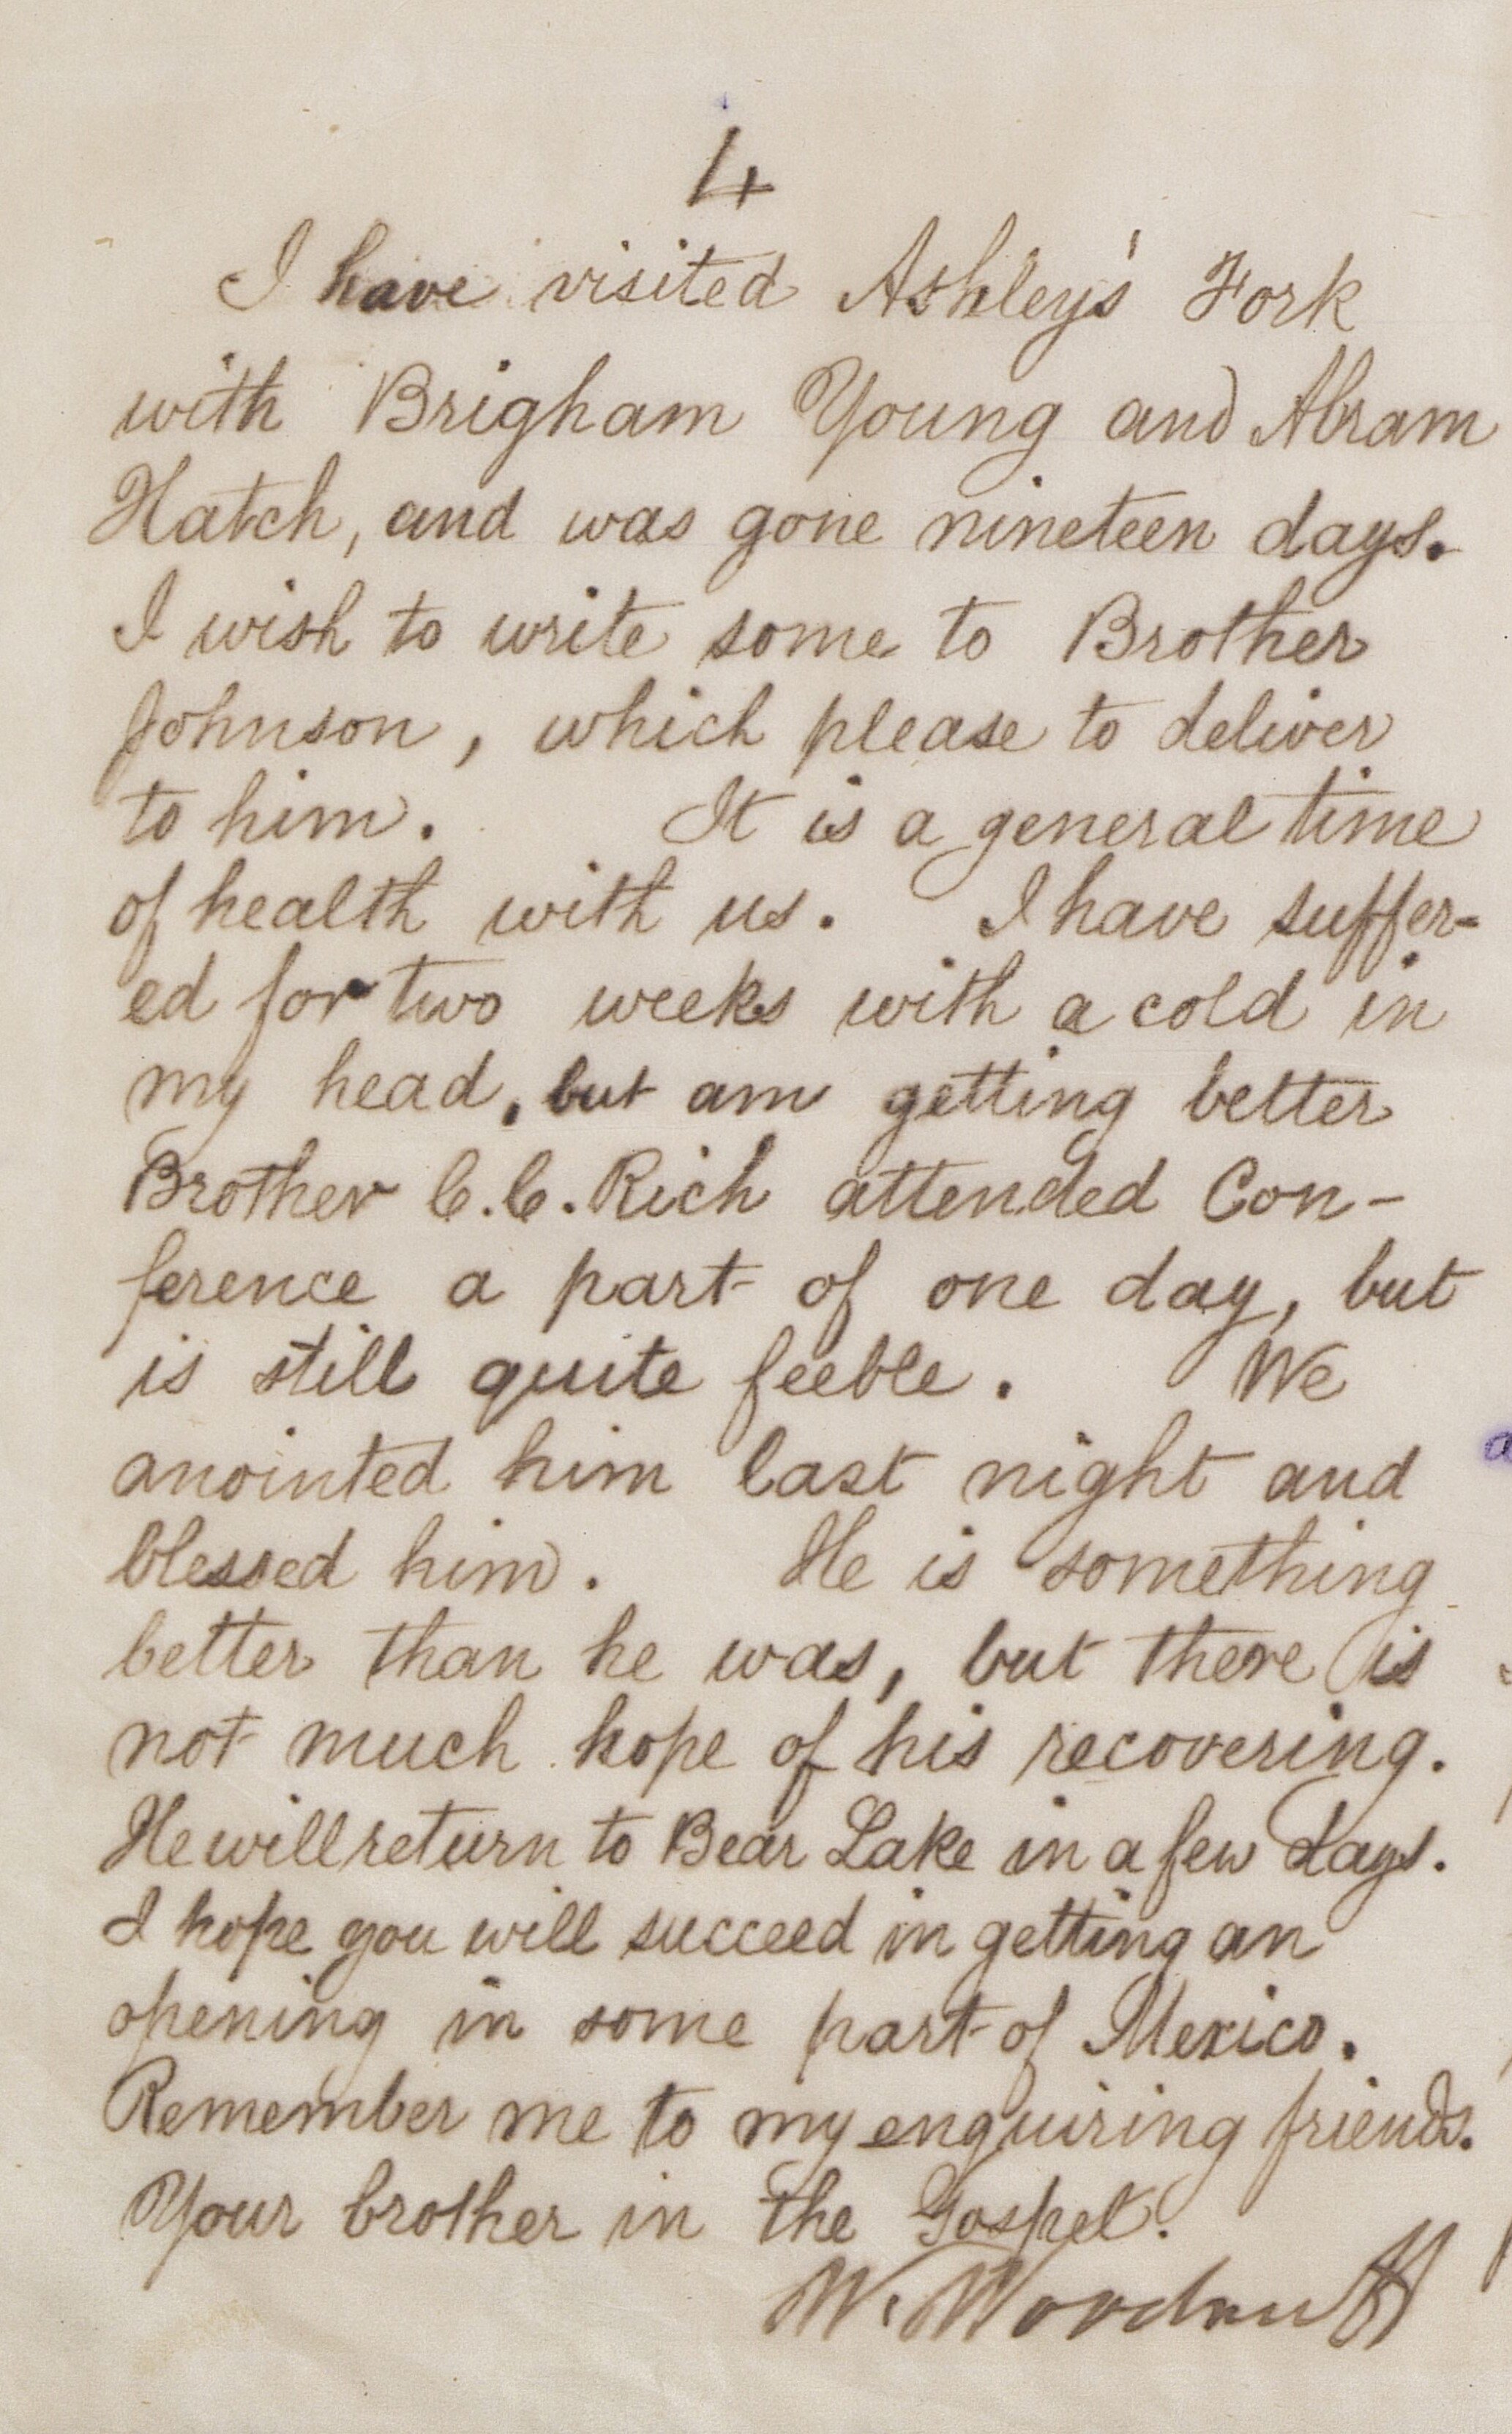 4
I have visited Ashley's Fork
with Brigham Young and Abram
Hatch, and was gone nineteen days.
I wish to write some to Brother
Johnson, which please to deliver
to him. It is a general time
of health with us. I have suffer-
ed for two weeks with a cold in
my head, but am getting better
Brother C. C. Rich attended Con-
ference a part of one day, but
is still quite feeble. We
anointed him last night and
blessed him. He is something
better than he was, but there is
not much hope of his recovering.
He will return to Bear Lake in a few days.
I hope you will succeed in getting an
opening in some part of Mexico.
Remember me to my enquiring friends.
Your brother in the Gospel.
W. Woodruff